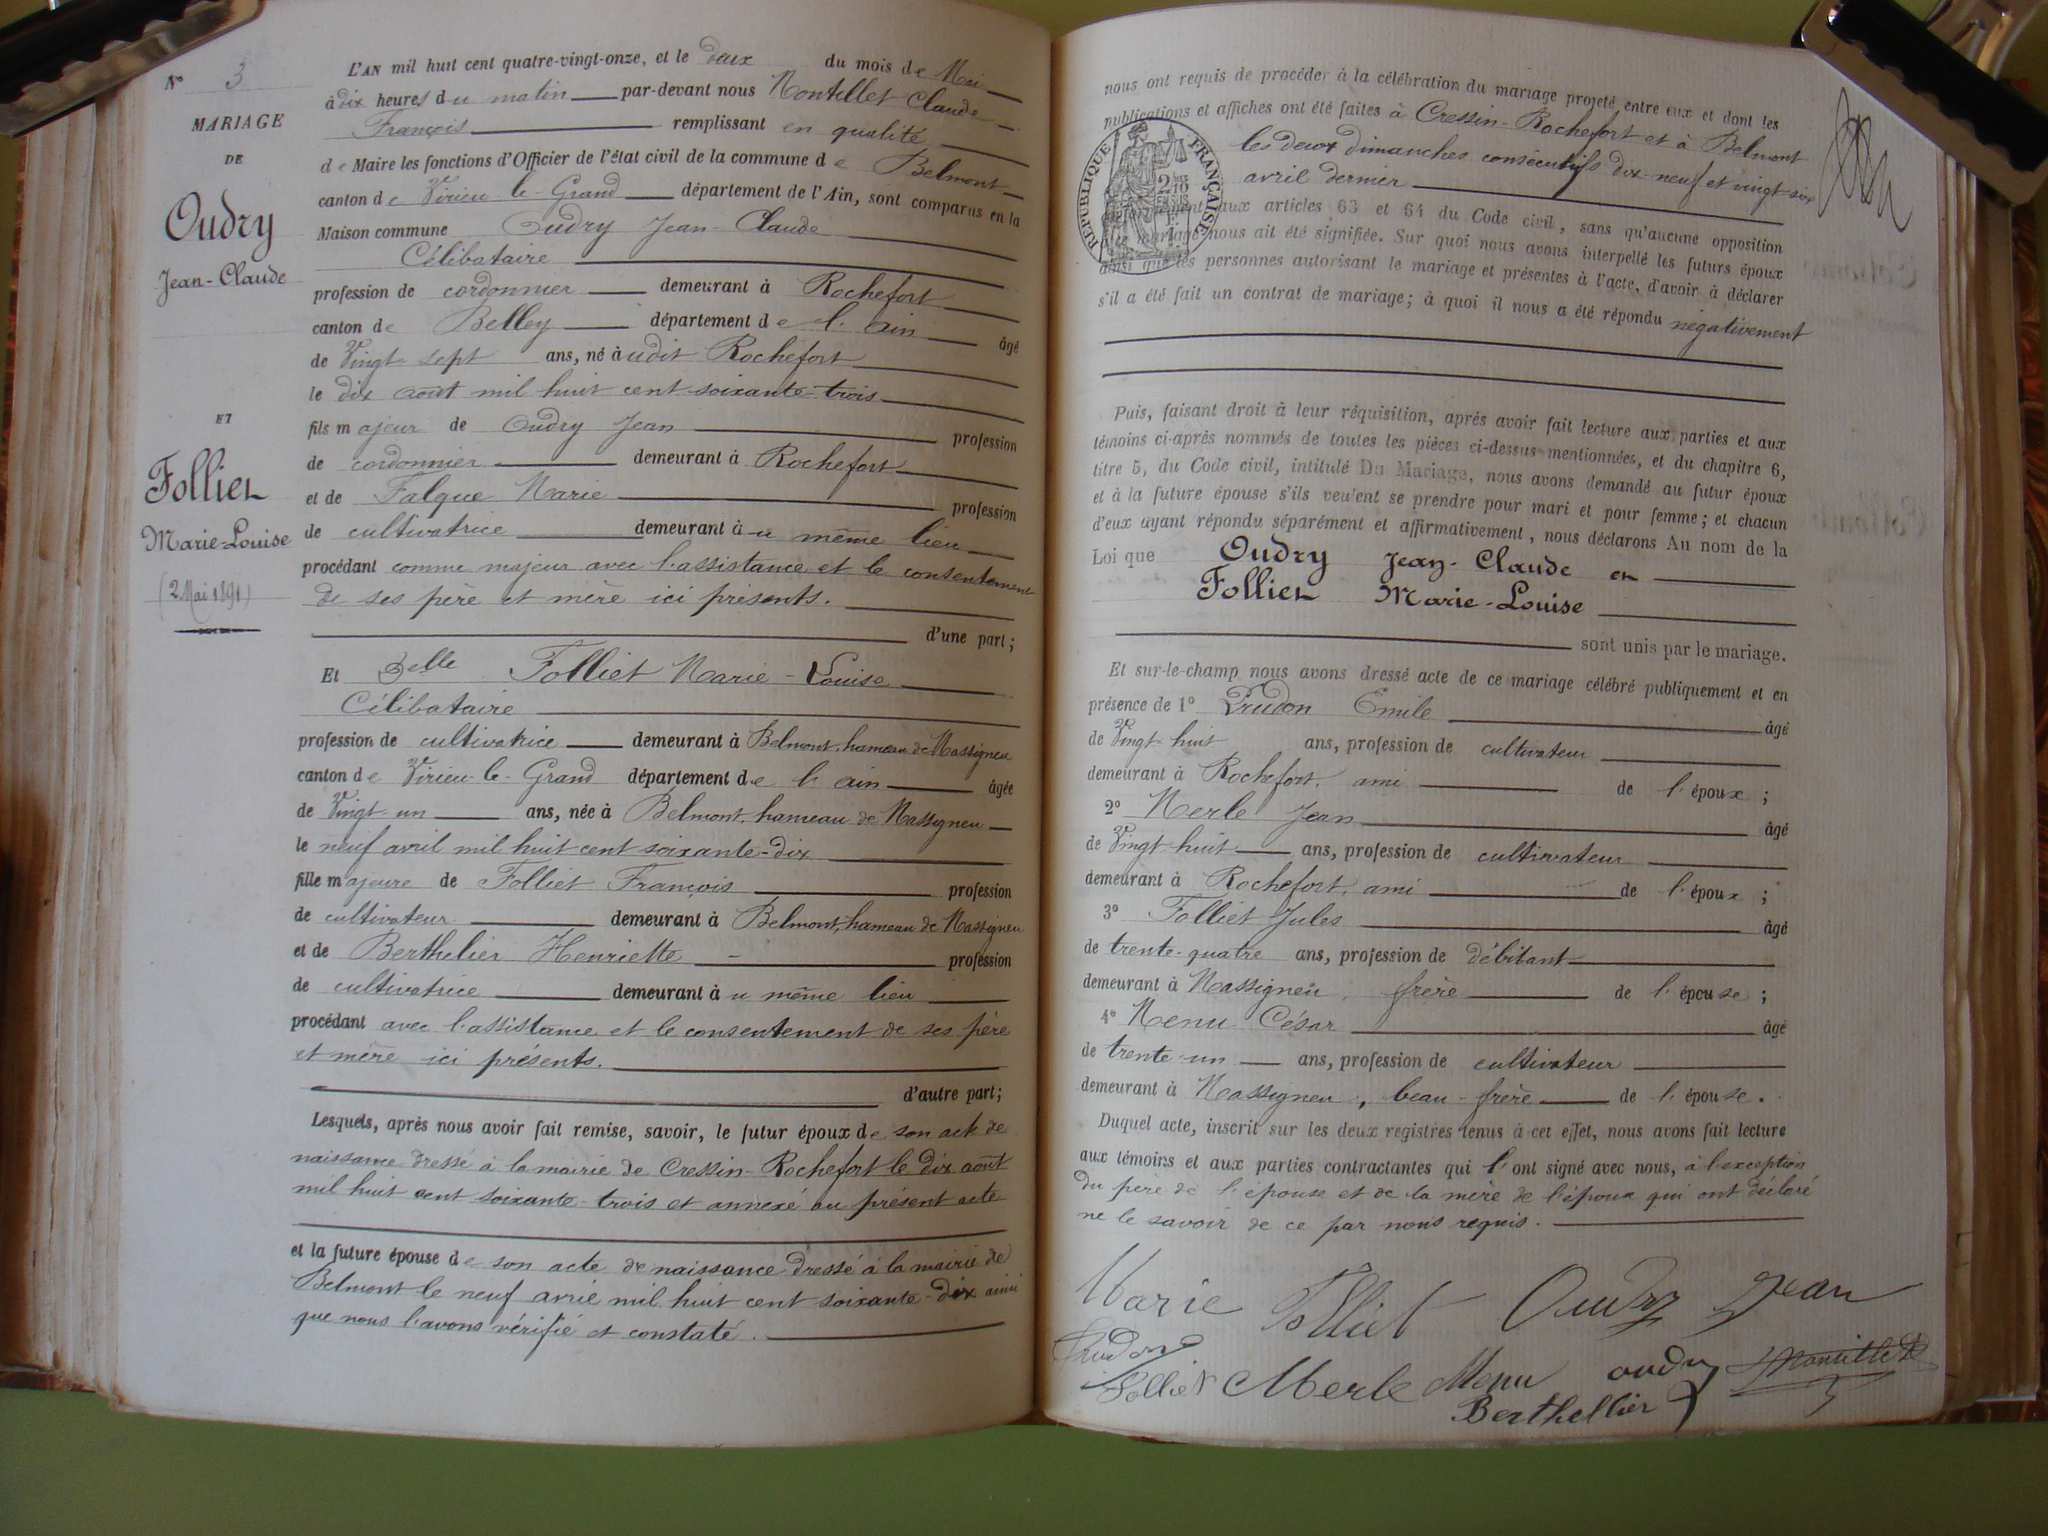 N° 3
MARIAGE
DE
Oudry
Jean-Claude
ET
Folliet
Marie-Louise
(2 Mai 1891)
L'AN mil huit cent quatre-vingt-onze, et le deux du mois de Mai
à dix heures du matin par-devant nous Montillet Claude
François remplissant en qualité
de Maire les fonctions d'Officier de l'état civil de la commune de Belmont
canton de Virieu-le-Grand département de l'Ain, sont comparus en la
Maison commune Oudry Jean-Claude
Célibataire
profession de cordonnier demeurant à Rochefort
canton de Belley département de l'ain âgé
de Vingt-sept ans, né audit Rochefort
le dix août mil huit cent soixante-trois
fils majeur de Oudry Jean profession
de cordonnier demeurant à Rochefort
et de Falque Marie profession
de cultivatrice demeurant au même lieu
procédant comme majeur avec l'assistance et le consentement
de ses père et mère ici présents.
d'une part;
Et Delle Folliet Marie-Louise
Célibataire
profession de cultivatrice demeurant à Belmont, hameau de Massigneu
canton de Virieu-le-Grand département de l'ain âgée
de Vingt-un ans, née à Belmont, hameau de Massigneu
le neuf avril mil huit cent soixante-dix
fille majeure de Folliet François profession
de cultivateur demeurant à Belmont, hameau de Massigneu
et de Berthelier Henriette profession
de cultivatrice demeurant au même lieu
procédant avec l'assistance et le consentement de ses père
et mère ici présents.
d'autre part;
Lesquels, après nous avoir fait remise, savoir, le futur époux de son acte de
naissance dressé à la mairie de Cressin-Rochefort le dix août
mil huit cent soixante-trois et annexé au présent acte
et la future épouse de son acte de naissance dressé à la mairie de
Belmont le neuf avril mil huit cent soixante-dix ainsi
que nous l'avons vérifié et constaté.
nous ont requis de procéder à la célébration du mariage projeté entre eux et dont les
publications et affiches ont été faites à Cressin-Rochefort et à Belmont
les deux dimanches consécutifs dix-neuf et vingt-six
avril dernier
RÉPUBLIQUE FRANÇAISE
aux articles 63 et 64 du Code civil, sans qu'aucune opposition
à ce mariage nous ait été signifiée. Sur quoi nous avons interpellé les futurs époux
ainsi que les personnes autorisant le mariage et présentes à l'acte, d'avoir à déclarer
s'il a été fait un contrat de mariage; à quoi il nous a été répondu négativement
Puis, faisant droit à leur réquisition, après avoir fait lecture aux parties et aux
témoins ci-après nommés de toutes les pièces ci-dessus mentionnées, et du chapitre 6,
titre 5, du Code civil, intitulé Du Mariage, nous avons demandé au futur époux
et à la future épouse s'ils veulent se prendre pour mari et pour femme; et chacun
d'eux ayant répondu séparément et affirmativement, nous déclarons Au nom de la
Loi que Oudry Jean-Claude et
Folliet Marie-Louise
sont unis par le mariage.
Et sur-le-champ nous avons dressé acte de ce mariage célébré publiquement et en
présence de 1° Prudon Emile âgé
de Vingt-huit ans, profession de cultivateur
demeurant à Rochefort, ami de l'époux;
2° Merle Jean âgé
de Vingt-huit ans, profession de cultivateur
demeurant à Rochefort, ami de l'époux;
3° Folliet Jules âgé
de trente-quatre ans, profession de débitant
demeurant à Massigneu, frère de l'épouse;
4° Menu César âgé
de trente-un ans, profession de cultivateur
demeurant à Massigneu, beau-frère de l'épouse.
Duquel acte, inscrit sur les deux registres tenus à cet effet, nous avons fait lecture
aux témoins et aux parties contractantes qui l'ont signé avec nous, à l'exception
du père de l'épouse et de la mère de l'époux qui ont déclaré
ne le savoir de ce par nous requis.
Marie Folliet Oudry Jean
Prudon oudry Montillet
Folliet Merle Menu
Berthellier